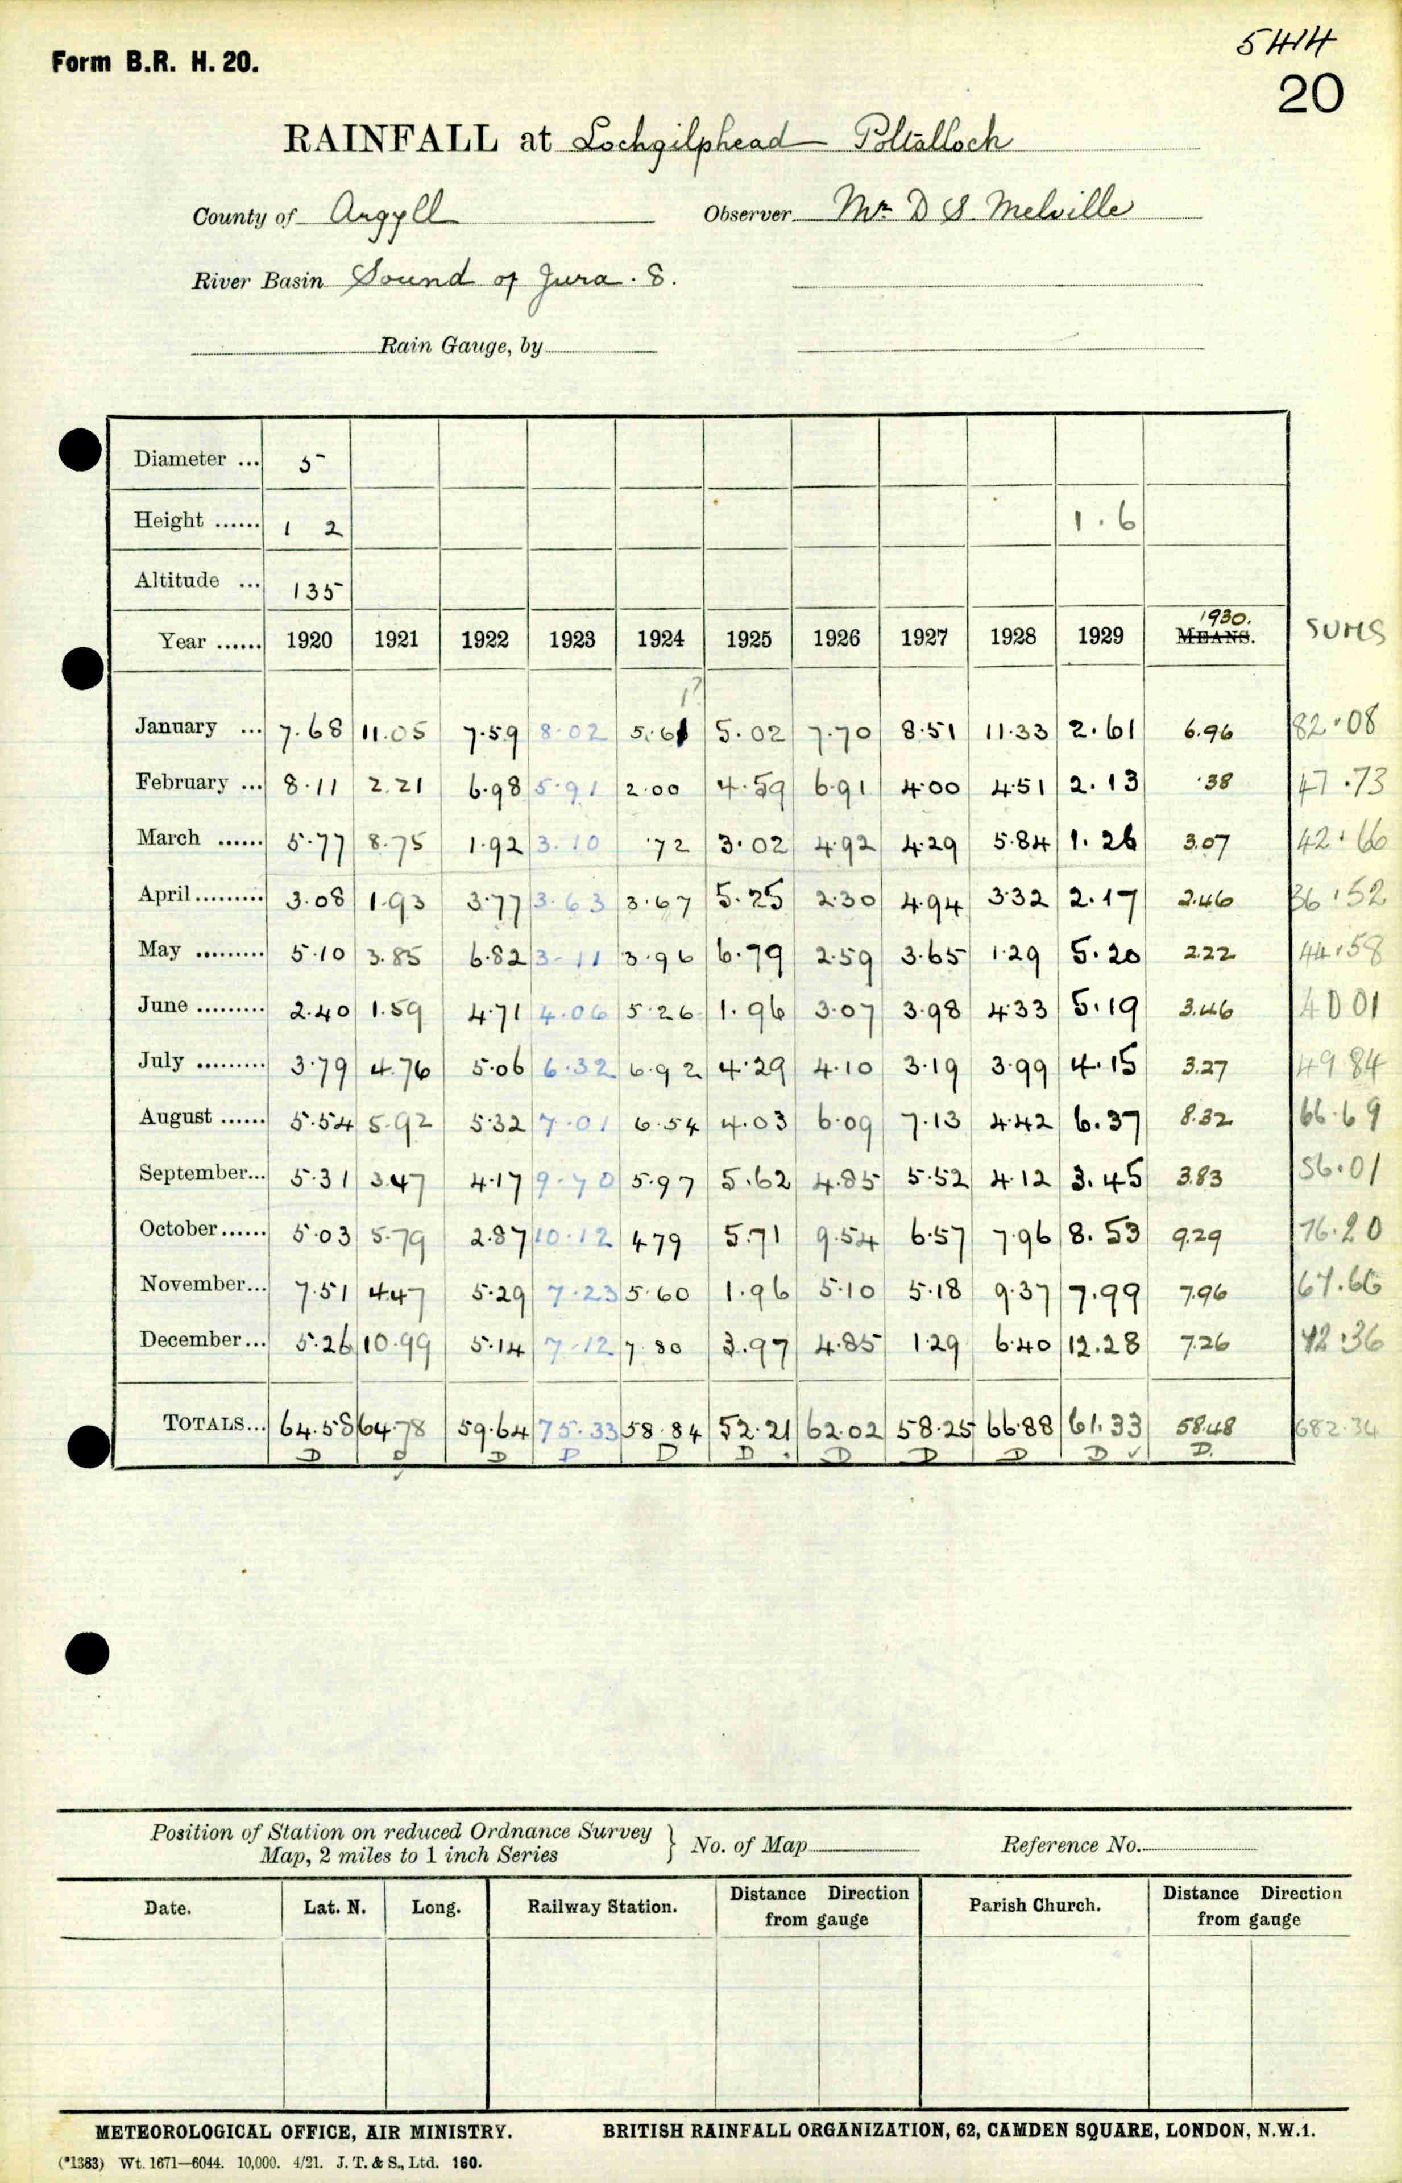 Form B.R. H. 20.
5414
20
RAINFALL at Lochgilphead — Poltalloch
County of Argyll Observer Mr D S. Melville
River Basin Sound of Jura . 8.
Rain Gauge, by
Diameter ... 5
Height ...... 1 2 1.6
Altitude ... 135
Year ...... 1920 1921 1922 1923 1924 1925 1926 1927 1928 1929 1930. MEANS. SUMS
1?
January ... 7.68 11.05 7.59 8.02 5.61 5.02 7.70 8.51 11.33 2.61 6.96 82.08
February ... 8.11 2.21 6.98 5.91 2.00 4.59 6.91 4.00 4.51 2.13 .38 47.73
March ...... 5.77 8.75 1.92 3.10 .72 3.02 4.92 4.29 5.84 1.26 3.07 42.66
April ......... 3.08 1.93 3.77 3.63 3.67 5.25 2.30 4.94 3.32 2.17 2.46 36.52
May ......... 5.10 3.85 6.82 3.11 3.96 6.79 2.59 3.65 1.29 5.20 2.22 44.58
June ......... 2.40 1.59 4.71 4.06 5.26 1.96 3.07 3.98 4.33 5.19 3.46 40 01
July ......... 3.79 4.76 5.06 6.32 6.92 4.29 4.10 3.19 3.99 4.15 3.27 49 84
August ...... 5.54 5.92 5.32 7.01 6.54 4.03 6.09 7.13 4.42 6.37 8.32 66.69
September... 5.31 3.47 4.17 9.70 5.97 5.62 4.85 5.52 4.12 3.45 3.83 56.01
October...... 5.03 5.79 2.87 10.12 4.79 5.71 9.54 6.57 7.96 8.53 9.29 76.20
November... 7.51 4.47 5.29 7.23 5.60 1.96 5.10 5.18 9.37 7.99 7.96 67.66
December... 5.26 10.99 5.14 7.12 7.80 3.97 4.85 1.29 6.40 12.28 7.26 72.36
TOTALS... 64.58 64.78 59.64 75.33 58.84 52.21 62.02 58.25 66.88 61.33 58.48 682.34
D D D D D D D D D D ✓ D.
Position of Station on reduced Ordnance Survey
Map, 2 miles to 1 inch Series } No. of Map Reference No.
Date. Lat. N. Long. Railway Station. Distance Direction from gauge Parish Church. Distance Direction from gauge
METEOROLOGICAL OFFICE, AIR MINISTRY. BRITISH RAINFALL ORGANIZATION, 62, CAMDEN SQUARE, LONDON, N.W.1.
(*1383) Wt. 1671—6044. 10,000. 4/21. J. T. & S., Ltd. 160.